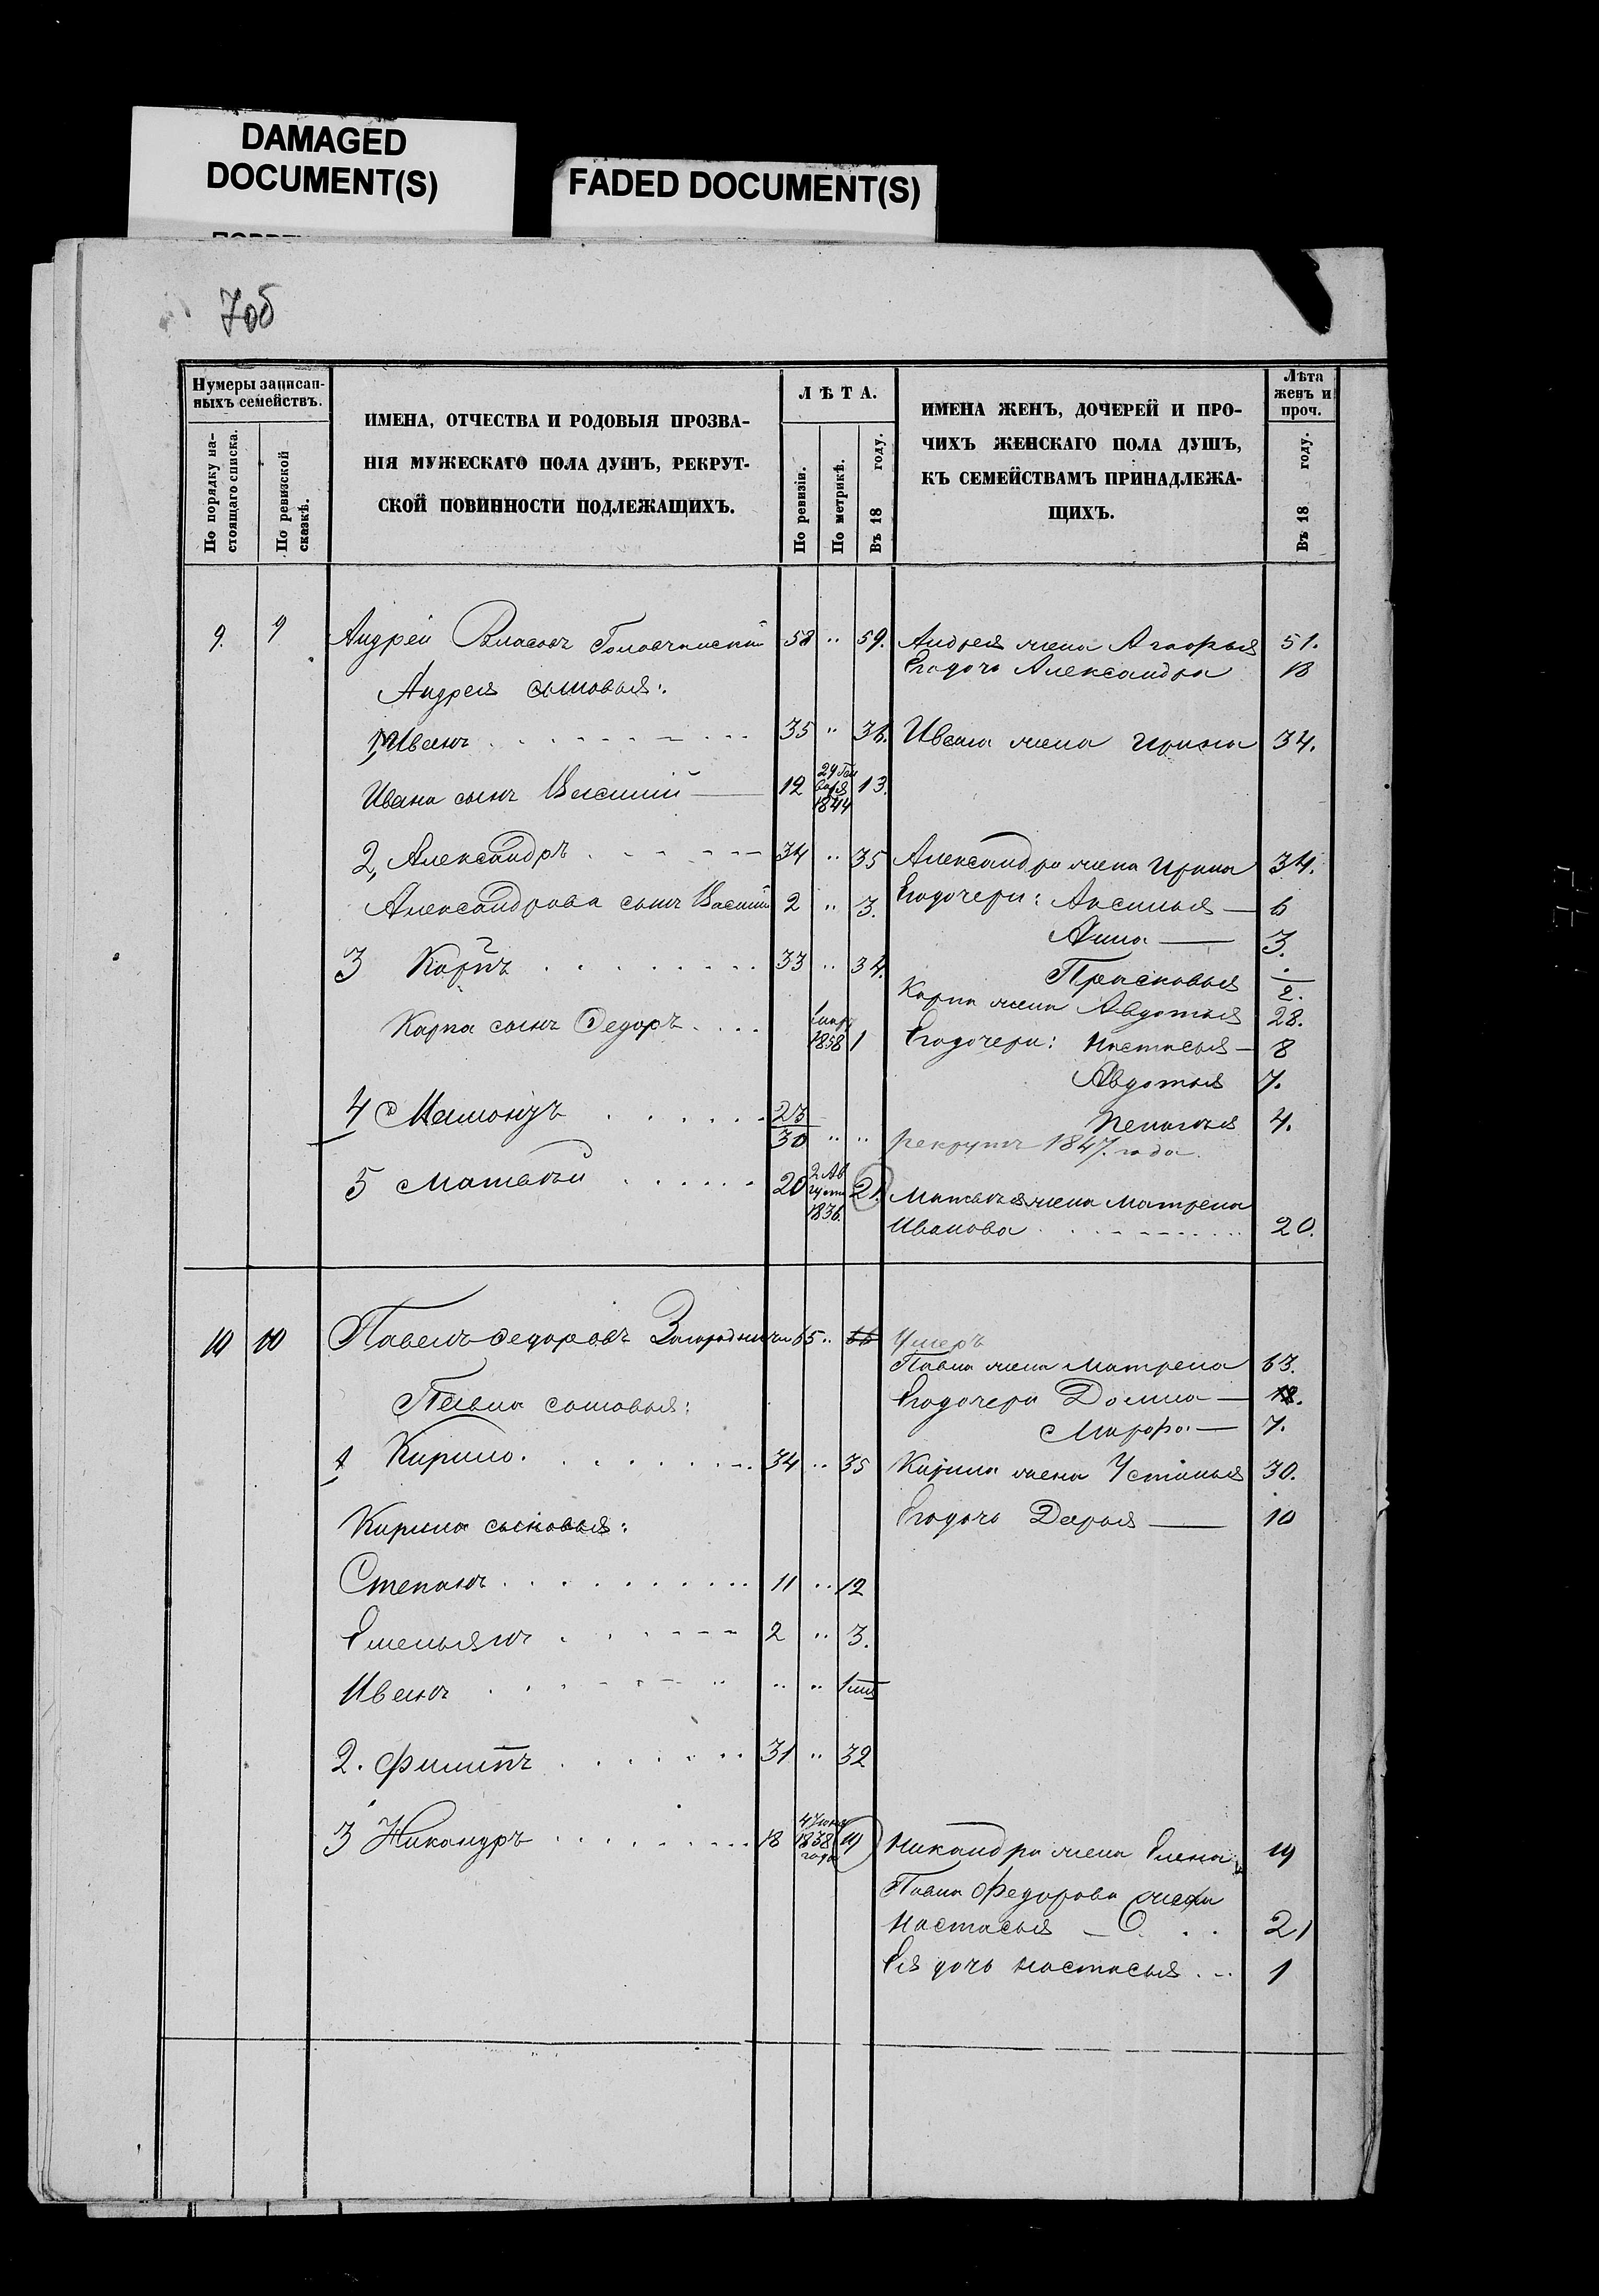 DAMAGED
DOCUMENT(S)
FADED DOCUMENT(S)
70б
Нумеры записан-
ныхъ семействъ.
По порядку на-
стоящаго списка.
По ревизской
сказкѣ.
ИМЕНА, ОТЧЕСТВА И РОДОВЫЯ ПРОЗВА-
НІЯ МУЖЕСКАГО ПОЛА ДУШЪ, РЕКРУТ-
СКОЙ ПОВИННОСТИ ПОДЛЕЖАЩИХЪ.
ЛѢТА.
По ревизіи.
По метрикѣ.
Въ 18 году.
ИМЕНА ЖЕНЪ, ДОЧЕРЕЙ И ПРО-
ЧИХЪ ЖЕНСКАГО ПОЛА ДУШЪ,
КЪ СЕМЕЙСТВАМЪ ПРИНАДЛЕЖА-
ЩИХЪ.
Лѣта
женъ и
проч.
Въ 18 году.
9. 9 Андрей Власовъ 58 " 59. Андрея жена Агафья 51.
Его дочь Александра 18
Андрея сыновья:
1, Иванъ 35 " 36. Ивана жена Ирина 34.
Ивана сынъ Василий 12 1844 13.
2, Александръ 34 " 35 Александра жена Ирина 34.
Александрова сынъ Василий 2 " 3. Его дочери: Аксинья 6
Анна 3.
3 Карпъ 33 " 34. Прасковья 2.
Карпа жена Авдотья 28.
Карпа сынъ Федоръ 1858 1 Его дочери: Настасья 8
Авдотья 7.
4 Мамонтъ 23 Пелагея 4.
30 " " рекрутъ 1847. года.
5 Матвѣй 20 2 Ав
густа
1836. 21. Матвѣя жена Матрена
Иванова 20.
10 10 Павелъ Федоровъ 65 " 66 Умеръ
Павла жена Матрена 63.
Павла сыновья: Его дочери Домна 18.
Марфа 7.
1 Кирило 34 " 35 Кирила жена Устинья 30.
Кирила сыновья: Его дочь Дарья 10
Степанъ 11 " 12
Емельянъ 2 " 3.
Иванъ " " 1
2. Филиппъ 31 " 32
3 Никандръ 18 1838
года 19 Никандра жена Елена 19
Павла Федорова
Настасья 21
Ея дочь Настасья 1